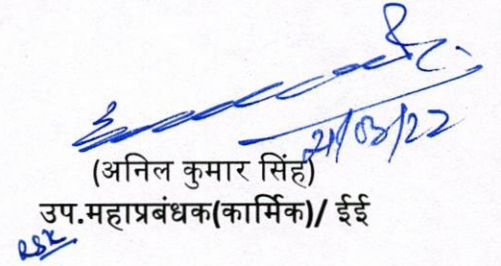 21/03/22
(अनिल कुमार सिंह)
उप.महाप्रबंधक(कार्मिक)/ ईई
RSK